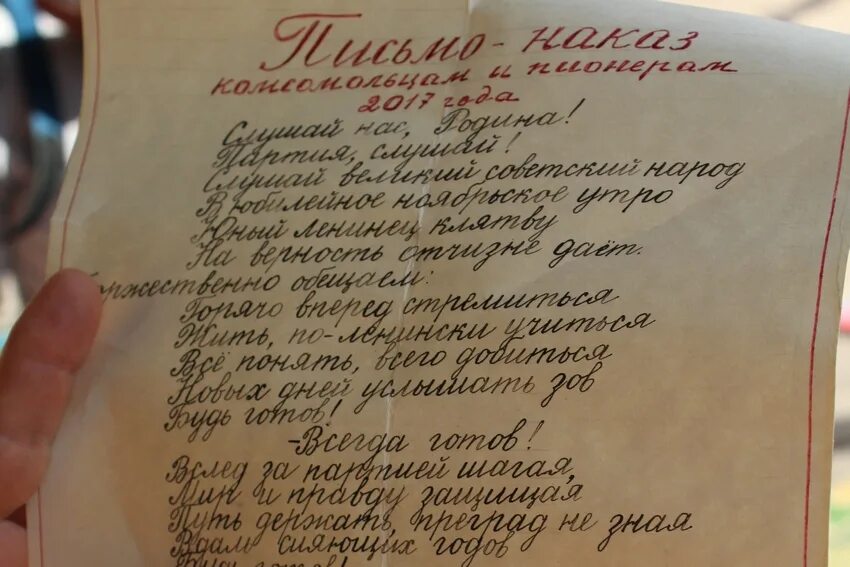 Письмо-наказ
комсомольцам и пионерам
2017 года
Слушай нас, Родина!
Партия, слушай!
Слушай великий советский народ
В юбилейное ноябрьское утро
Юный ленинец клятву
На верность отчизне даёт.
оржественно обещаем:
Горячо вперед стремиться
Жить, по-ленински учиться
Всё понять, всего добиться
Новых дней услышать зов
Будь готов!
-Всегда готов!
Вслед за партией шагая,
Мир и правду защищая
Путь держать, преград не зная
Вдаль сияющих годов
Будь готов!